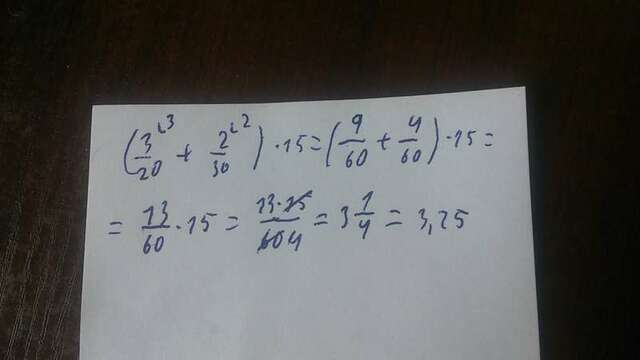 (3/20 ⌞3 + 2/30 ⌞2) · 15 = (9/60 + 4/60) · 15 =
= 13/60 · 15 = 13·15/60 4 = 3 1/4 = 3,25